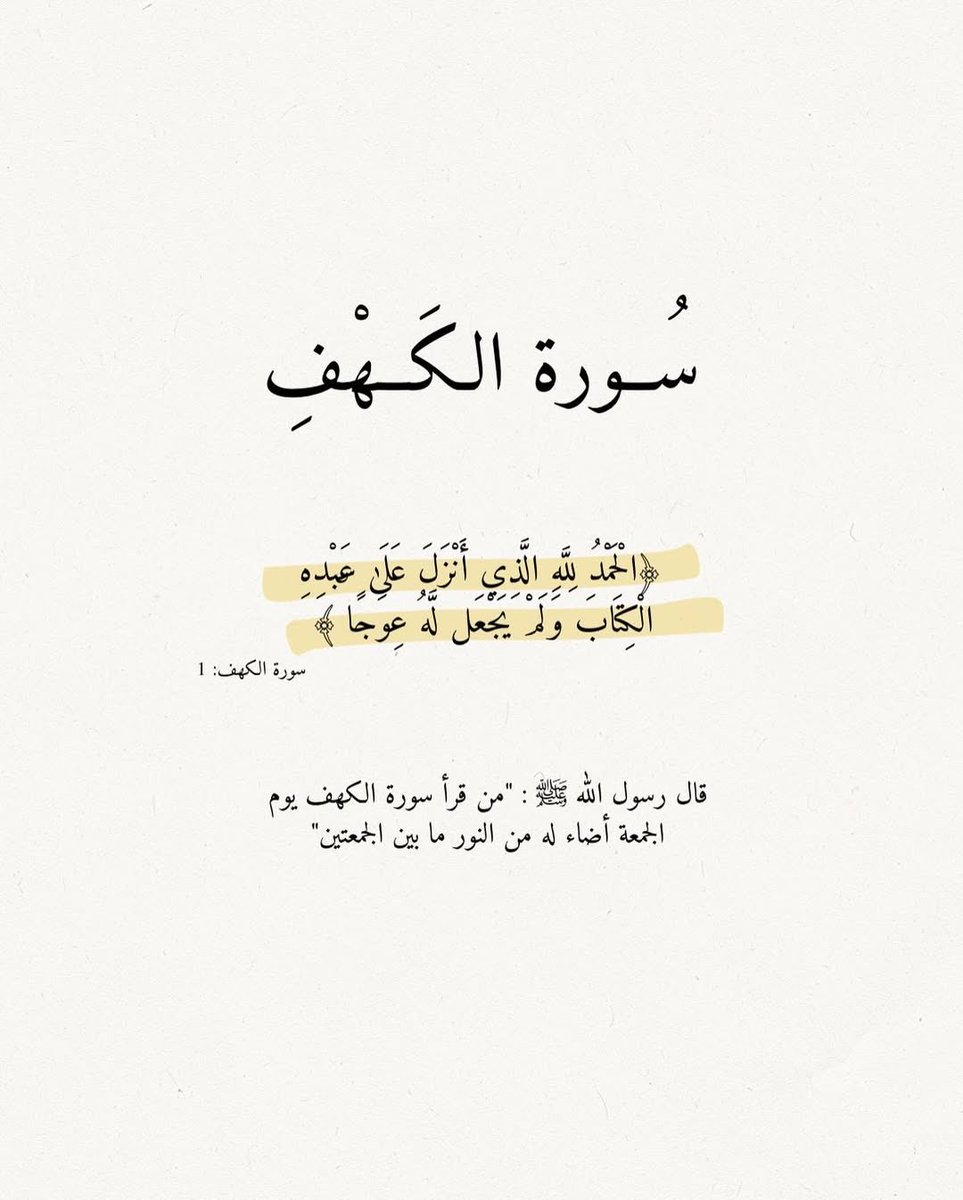 سُـورة الكَـهْفِ
﴿الْحَمْدُ لِلَّهِ الَّذِي أَنْزَلَ عَلَىٰ عَبْدِهِ
الْكِتَابَ وَلَمْ يَجْعَل لَّهُ عِوَجًا ﴾
سورة الكهف: 1
قال رسول الله ﷺ : "من قرأ سورة الكهف يوم
الجمعة أضاء له من النور ما بين الجمعتين"